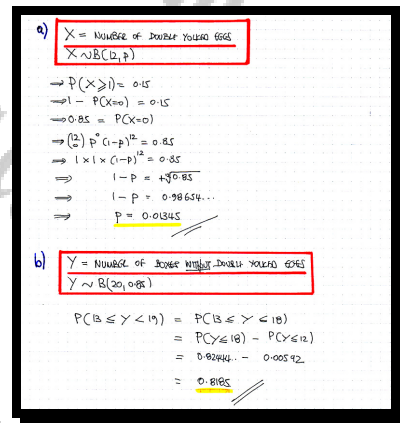 a) X = NUMBER OF DOUBLE YOLKED EGGS
X ~ B(12, p)
⇒ P(X ⩾ 1) = 0.15
⇒ 1 - P(X=0) = 0.15
⇒ 0.85 = P(X=0)
⇒ (12 0) p⁰ (1-p)¹² = 0.85
⇒ 1 × 1 × (1-p)¹² = 0.85
⇒ 1-p = +¹²√0.85
⇒ 1-p = 0.98654...
⇒ p = 0.01345
b) Y = NUMBER OF BOXES WITHOUT DOUBLE YOLKED EGGS
Y ~ B(20, 0.85)
P(13 ≤ Y < 19) = P(13 ≤ Y ≤ 18)
= P(Y ≤ 18) - P(Y ≤ 12)
= 0.82444.. - 0.00592
= 0.8185